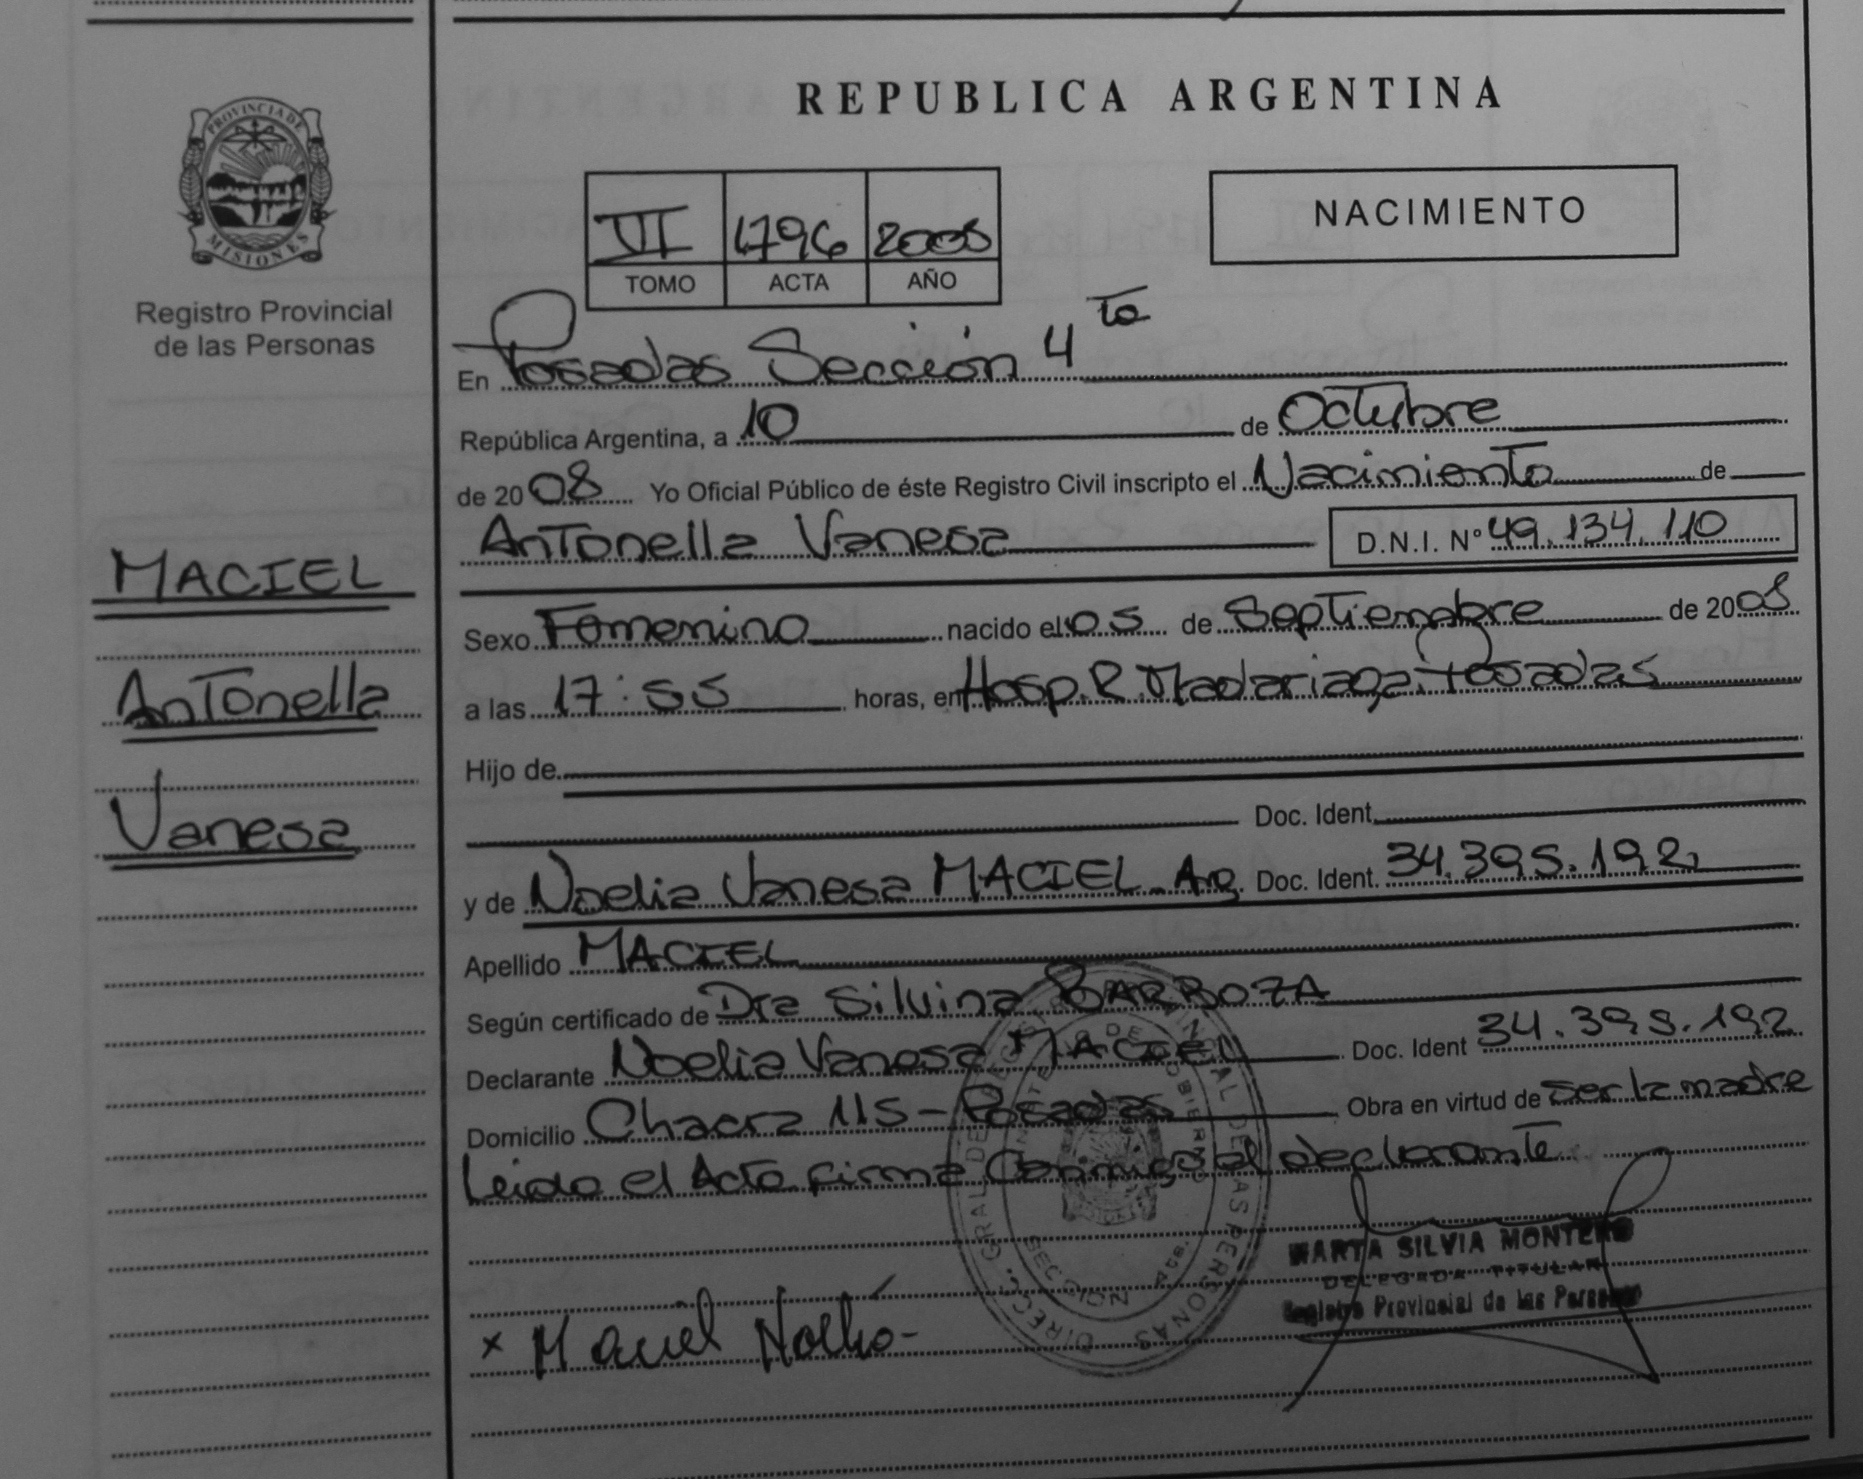 PROVINCIA DE
MISIONES
Registro Provincial
de las Personas
MACIEL
Antonella
Vanesa
REPUBLICA ARGENTINA
VI 1796 2008
TOMO ACTA AÑO
NACIMIENTO
En Posadas Sección 4ta
República Argentina, a 10 de Octubre
de 2008 Yo Oficial Público de éste Registro Civil inscripto el Nacimiento de
Antonella Vanesa D.N.I. N° 49.134.110
Sexo Femenino nacido el 05 de Septiembre de 2008
a las 17:55 horas, en Hosp. R. Madariaga. Posadas
Hijo de
Doc. Ident.
y de Noelia Vanesa MACIEL - Arg. Doc. Ident. 34.395.192
Apellido MACIEL
Según certificado de Dra Silvina BARBOZA
Declarante Noelia Vanesa MACIEL Doc. Ident 34.395.192
Domicilio Chacra 115 - Posadas Obra en virtud de ser la madre
Leida el Acta firma Conmigo el declarante
MARTA SILVIA MONTERO
DELEGADA TITULAR
Registro Provincial de las Personas
x Maciel Noelia -